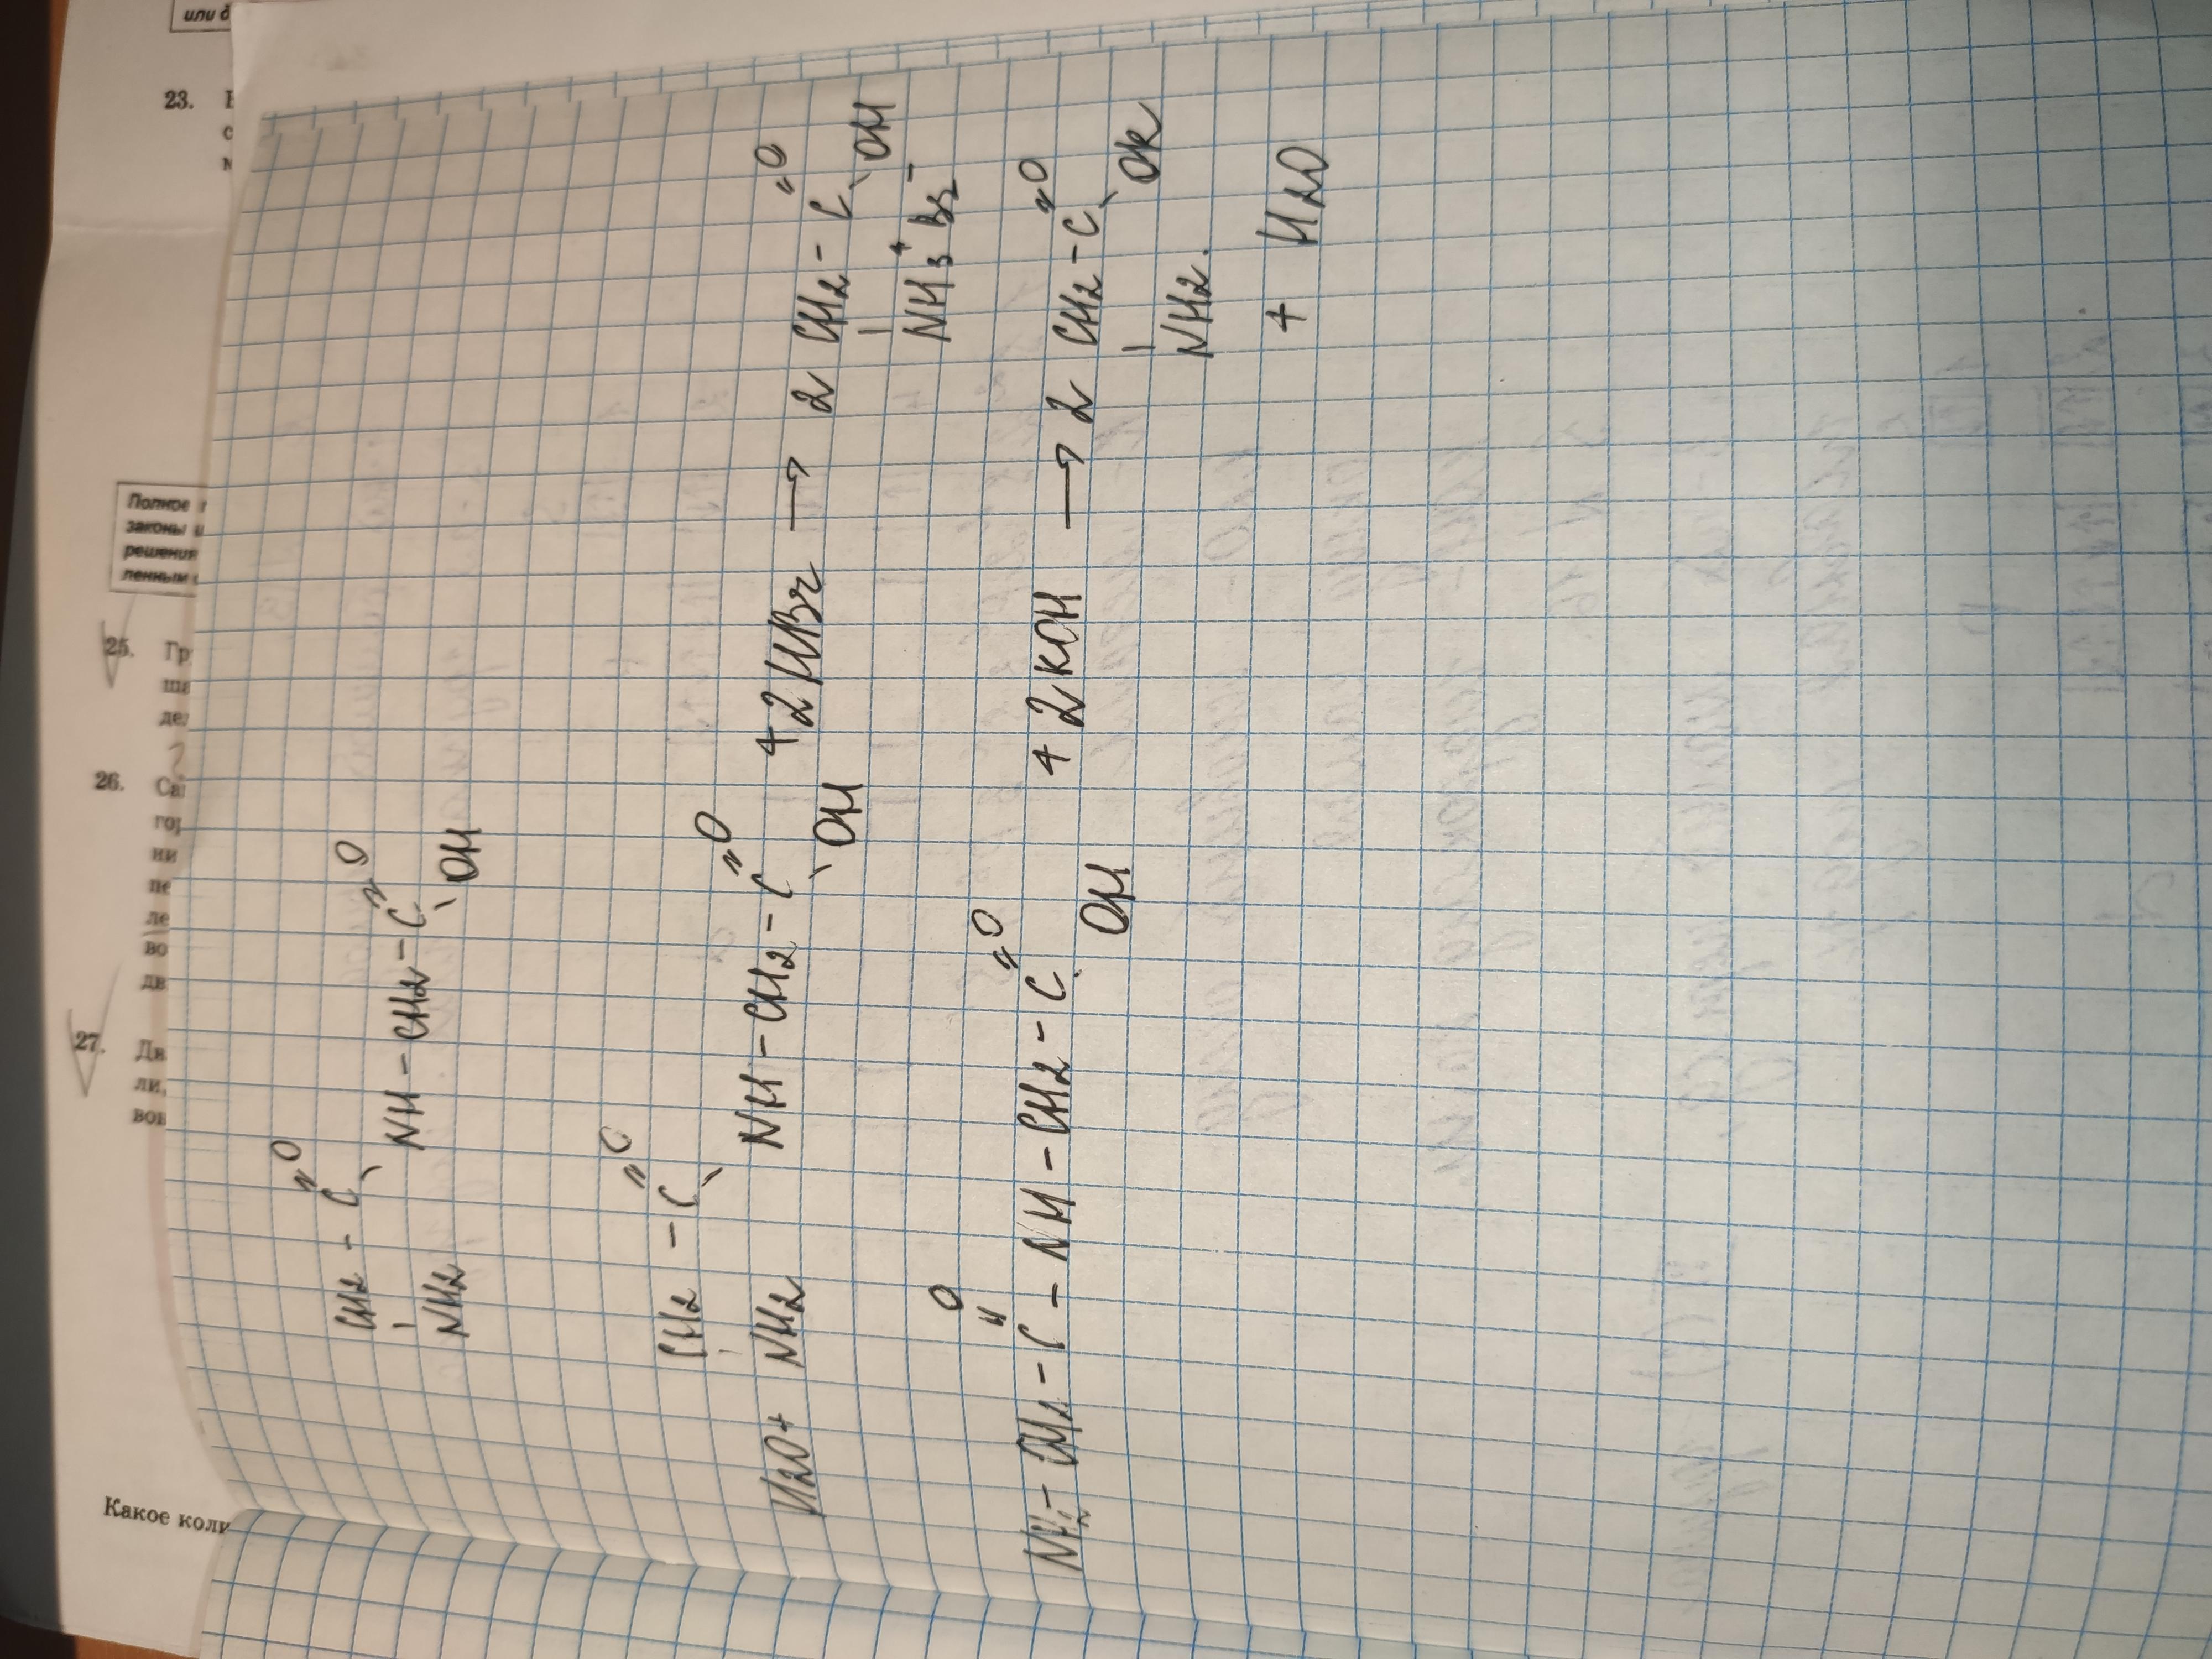 или
23.
Полное
законы и
решения
ленным
25. Гр
ша
дел
26. Са
гор
ни
пе
ле
во
дв
27. Дв
ли,
вов
Какое коли
O
CH2 - C
NH - CH2 - C
O
NH2
OH
O
CH2 - C
O
H2O + NH2
NH - CH2 - C
OH
+ 2HBr → 2 CH2 - C
O
OH
NH3+ Br-
O
NH2 - CH2 - C - NH - CH2 - C
O
OH
+ 2KOH → 2 CH2 - C
O
OK
NH2.
+ H2O